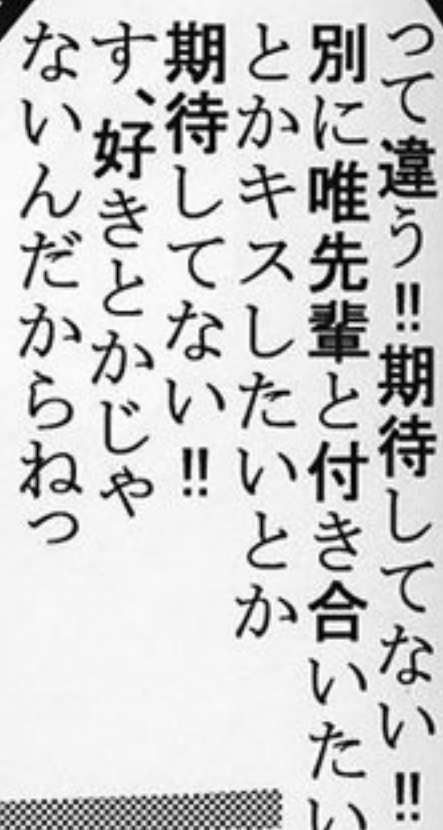 って違う‼期待してない‼
別に唯先輩と付き合いたい
とかキスしたいとか
期待してない‼
す、好きとかじゃ
ないんだからねっ